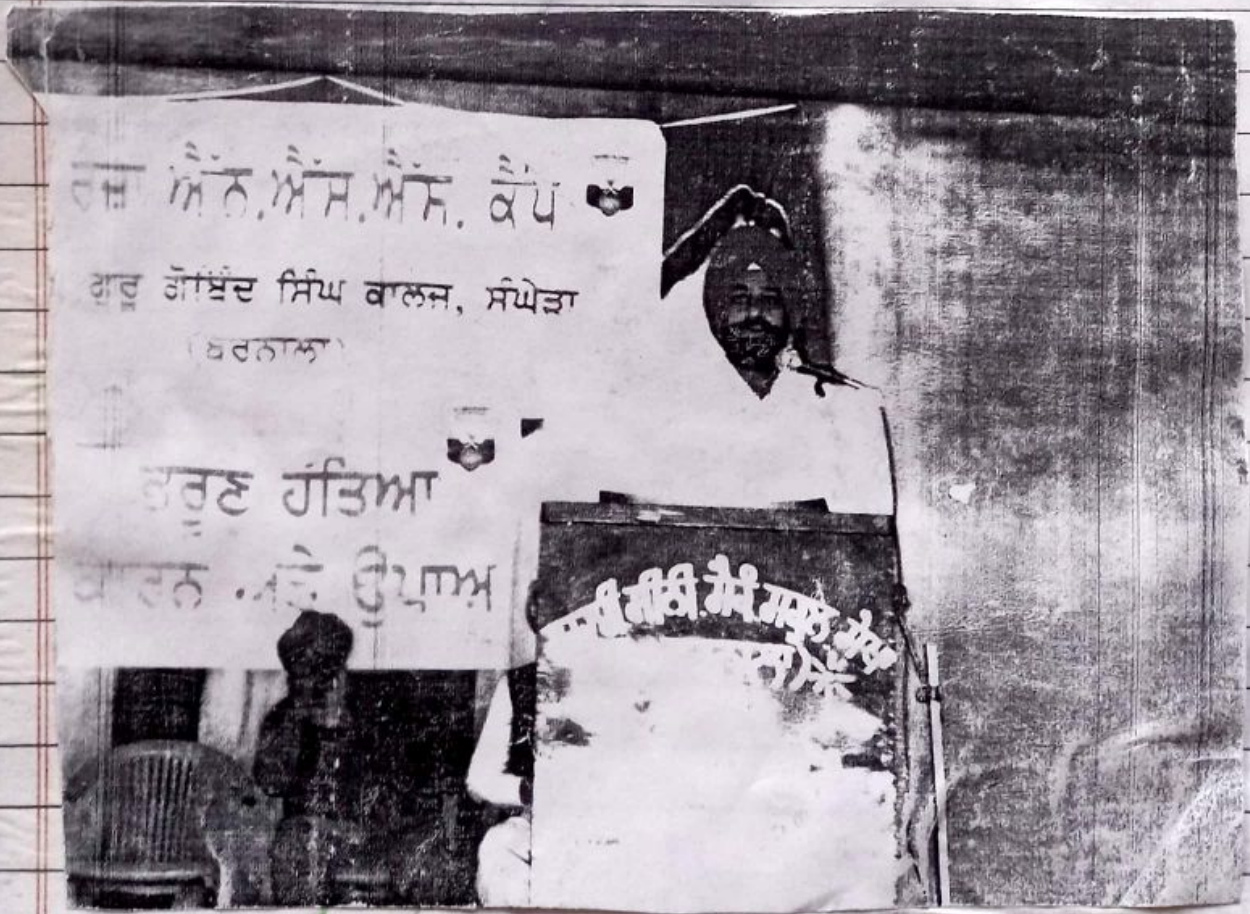 ਰਜ਼ਾ ਐੱਨ.ਐੱਸ.ਐੱਸ. ਕੈਂਪ
ਗੁਰੂ ਗੋਬਿੰਦ ਸਿੰਘ ਕਾਲਜ, ਸੰਘੇੜਾ
(ਬਰਨਾਲਾ)
ਭਰੂਣ ਹੱਤਿਆ
ਕਾਰਨ ਅਤੇ ਉਪਾਅ
ਸਕੂਲ